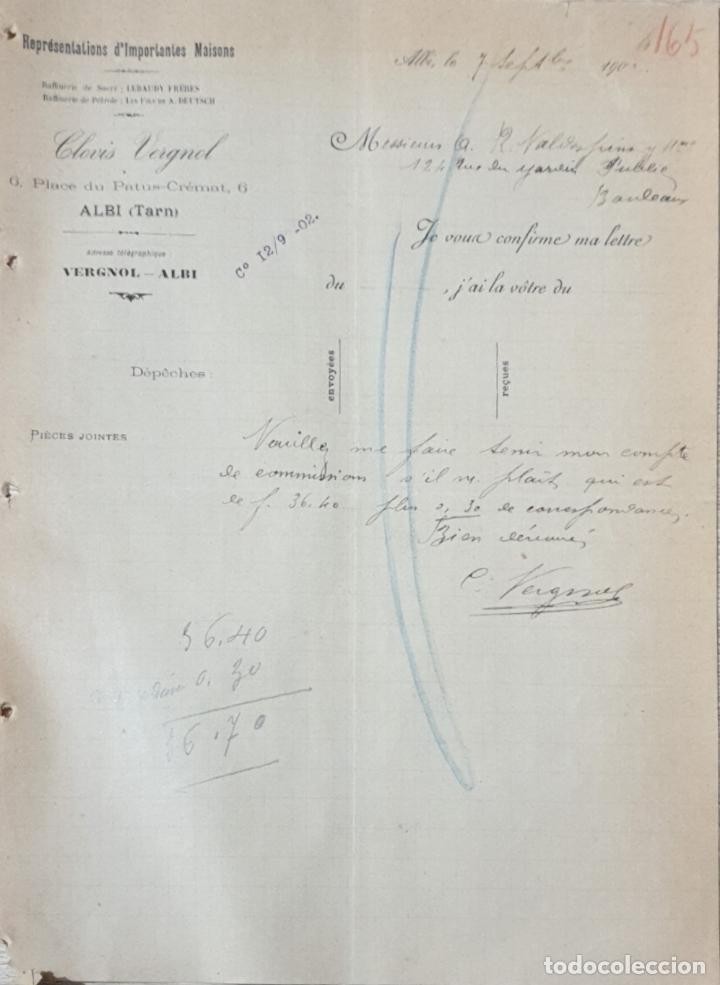 165
Représentations d'Importantes Maisons
Albi, le 7 Septbre 190
Raffinerie de Sucre : LEBAUDY FRÈRES
Raffinerie de Pétrole : LES FILS DE A. DEUTSCH
Clovis Vergnol
6, Place du Patus-Crémat, 6
ALBI (Tarn)
Adresse télégraphique :
VERGNOL - ALBI
Messieurs A. R. Valdespino y Hno
124 Rue du Jardin Public
Bordeaux
Co 12/9 -02.
Je vous confirme ma lettre
du , j'ai la vôtre du
Dépêches :
envoyées
reçues
PIÈCES JOINTES
Veuillez me faire tenir mon compte
de commissions s'il v. plaît, qui est
de f. 36.40 plus 0,30 de correspondance.
Bien dévoué
C. Vergnol
36.40
0.30
36.70
todocoleccion.net